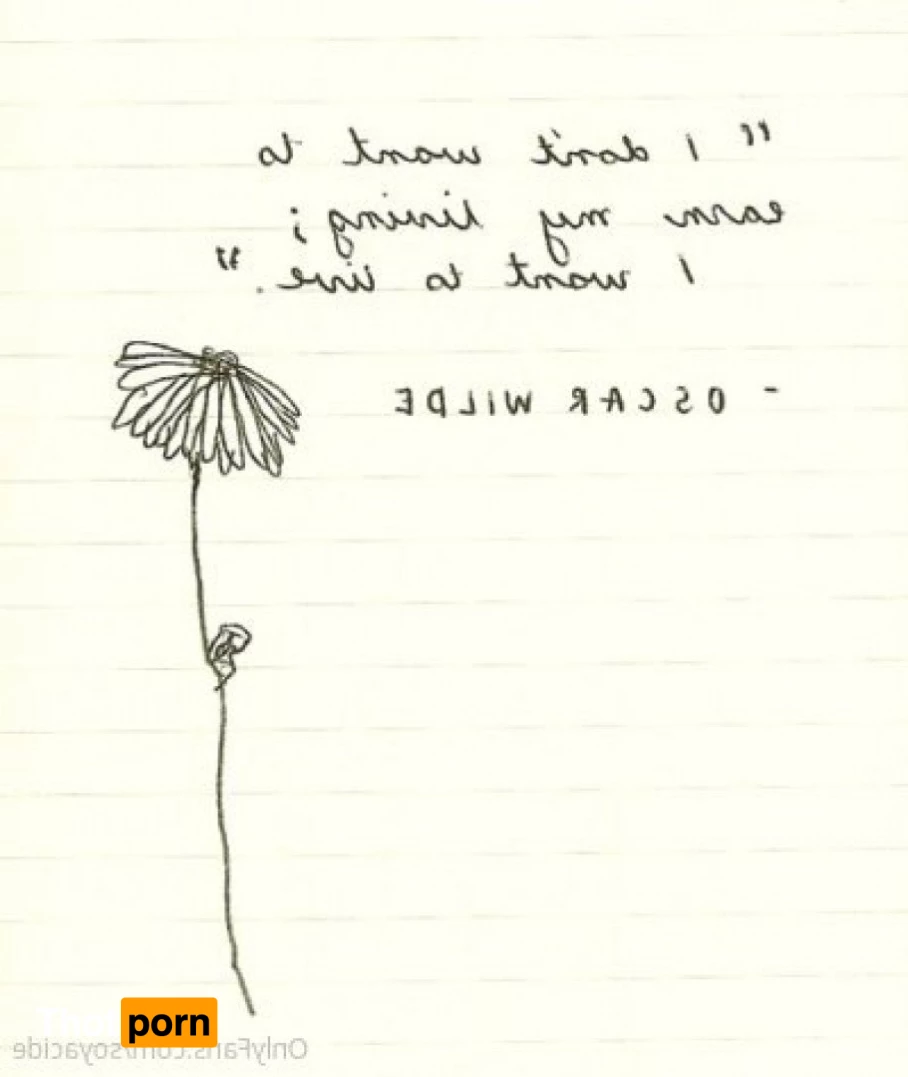 “ I don't want to
earn my living ;
I want to live. ”
- OSCAR WILDE
porn